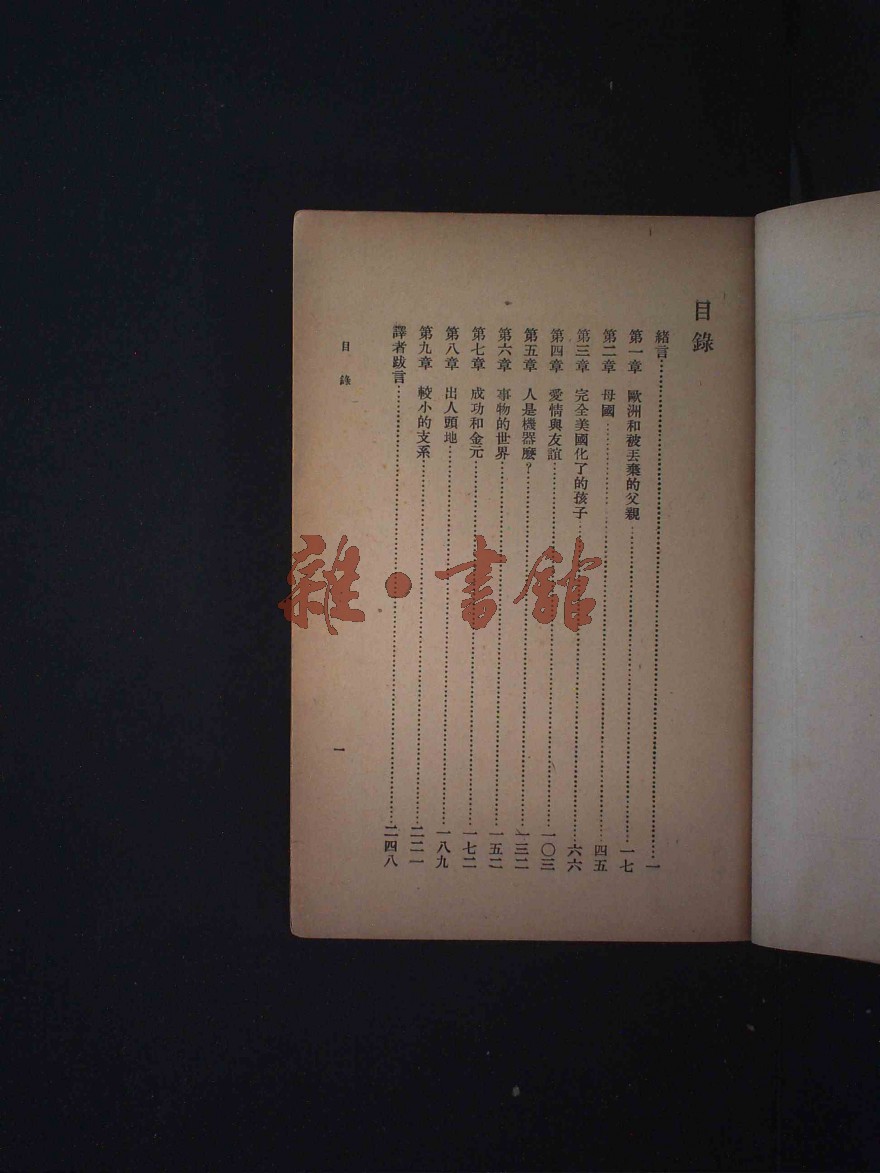 目錄
緒言……一
第一章　歐洲和被丟棄的父親……一七
第二章　母國……四五
第三章　完全美國化了的孩子……六六
第四章　愛情與友誼……一〇三
第五章　人是機器麽？……一三二
第六章　事物的世界……一五二
第七章　成功和金元……一七二
第八章　出人頭地……一八九
第九章　較小的支系……二二一
譯者跋言……二四八
目錄
一
雜·書館